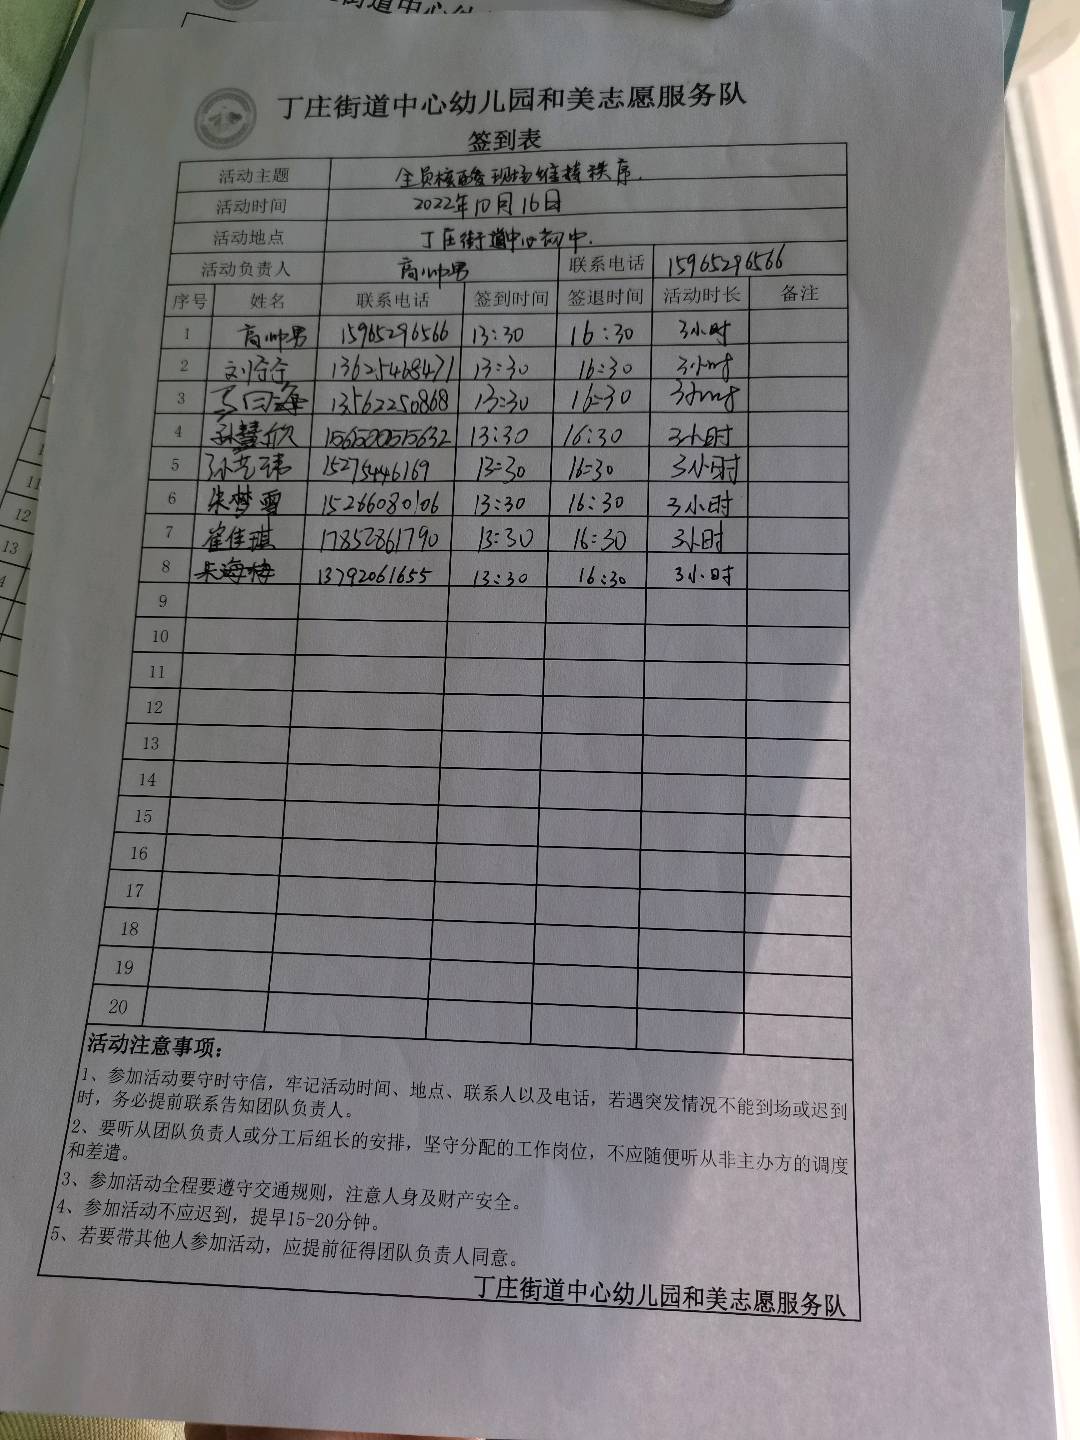 丁庄街道中心幼儿园和美志愿服务队
签到表
活动主题 全员核酸现场维持秩序.
活动时间 2022年10月16日
活动地点 丁庄街道中心初中.
活动负责人 高帅男 联系电话 15965296566
序号 姓名 联系电话 签到时间 签退时间 活动时长 备注
1 高帅男 15965296566 13:30 16:30 3小时
2 刘 13625468471 13:30 16:30 3小时
3 13562250868 13:30 16:30 3小时
4 孙慧欣 13:30 16:30 3小时
5 孙 15275446169 13:30 16:30 3小时
6 朱梦雪 15266080106 13:30 16:30 3小时
7 崔佳琪 17852861790 13:30 16:30 3小时
8 海梅 13792061655 13:30 16:30 3小时
9
10
11
12
13
14
15
16
17
18
19
20
活动注意事项：
1、参加活动要守时守信，牢记活动时间、地点、联系人以及电话，若遇突发情况不能到场或迟到
时，务必提前联系告知团队负责人。
2、要听从团队负责人或分工后组长的安排，坚守分配的工作岗位，不应随便听从非主办方的调度
和差遣。
3、参加活动全程要遵守交通规则，注意人身及财产安全。
4、参加活动不应迟到，提早15-20分钟。
5、若要带其他人参加活动，应提前征得团队负责人同意。
丁庄街道中心幼儿园和美志愿服务队